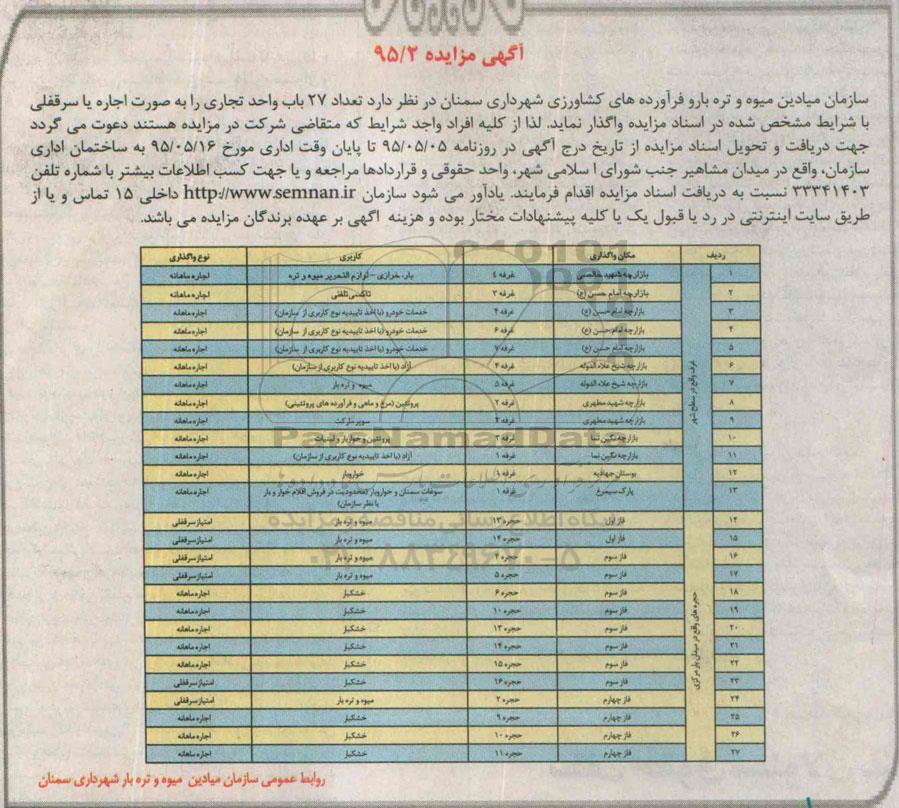 آگهی مزایده ۹۵/۲
سازمان میادین میوه و تره بارو فرآورده های کشاورزی شهرداری سمنان در نظر دارد تعداد ۲۷ باب واحد تجاری را به صورت اجاره یا سرقفلی
با شرایط مشخص شده در اسناد مزایده واگذار نماید. لذا از کلیه افراد واجد شرایط که متقاضی شرکت در مزایده هستند دعوت می گردد
جهت دریافت و تحویل اسناد مزایده از تاریخ درج آگهی در روزنامه ۹۵/۰۵/۰۵ تا پایان وقت اداری مورخ ۹۵/۰۵/۱۶ به ساختمان اداری
سازمان، واقع در میدان مشاهیر جنب شورای ا سلامی شهر، واحد حقوقی و قراردادها مراجعه و یا جهت کسب اطلاعات بیشتر با شماره تلفن
۳۳۳۴۱۴۰۳ نسبت به دریافت اسناد مزایده اقدام فرمایند. یادآور می شود سازمان http://www.semnan.ir داخلی ۱۵ تماس و یا از
طریق سایت اینترنتی در رد یا قبول یک یا کلیه پیشنهادات مختار بوده و هزینه آگهی بر عهده برندگان مزایده می باشد.
ردیف مکان واگذاری کاربری نوع واگذاری
غرف واقع در سطح شهر
۱ بازارچه شهید خالصی غرفه ۴ بار، خرازی – لوازم التحریر میوه و تره اجاره ماهانه
۲ بازارچه امام حسن (ع) غرفه ۳ تاکسی تلفنی اجاره ماهانه
۳ بازارچه امام حسن (ع) غرفه ۴ خدمات خودرو (با اخذ تاییدیه نوع کاربری از سازمان) اجاره ماهانه
۴ بازارچه امام حسن (ع) غرفه ۶ خدمات خودرو (با اخذ تاییدیه نوع کاربری از سازمان) اجاره ماهانه
۵ بازارچه امام حسن (ع) غرفه ۷ خدمات خودرو (با اخذ تاییدیه نوع کاربری از سازمان) اجاره ماهانه
۶ بازارچه شیخ علاء الدوله غرفه ۴ آزاد (با اخذ تاییدیه نوع کاربری از سازمان) اجاره ماهانه
۷ بازارچه شیخ علاء الدوله غرفه ۵ میوه و تره بار اجاره ماهانه
۸ بازارچه شهید مطهری غرفه ۲ پروتئین (مرغ و ماهی و فرآورده های پروتئینی) اجاره ماهانه
۹ بازارچه شهید مطهری غرفه ۴ سوپر مارکت اجاره ماهانه
۱۰ بازارچه نگین نما غرفه ۳ پروتئین و خواربار و لبنیات اجاره ماهانه
۱۱ بازارچه نگین نما غرفه ۱ آزاد (با اخذ تاییدیه نوع کاربری از سازمان) اجاره ماهانه
۱۲ بوستان جهادیه غرفه ۱ خواروبار اجاره ماهانه
۱۳ پارک سیمرغ غرفه ۱ سوغات سمنان و خواروبار (محدودیت در فروش اقلام خوار و بار
با نظر سازمان) اجاره ماهانه
حجره های واقع در میدان بار مرکزی
۱۴ فاز اول حجره ۱۳ میوه و تره بار امتیاز سرقفلی
۱۵ فاز اول حجره ۱۴ میوه و تره بار امتیاز سرقفلی
۱۶ فاز سوم حجره ۴ میوه و تره بار امتیاز سرقفلی
۱۷ فاز سوم حجره ۵ میوه و تره بار امتیاز سرقفلی
۱۸ فاز سوم حجره ۶ خشکبار اجاره ماهانه
۱۹ فاز سوم حجره ۱۰ خشکبار اجاره ماهانه
۲۰ فاز سوم حجره ۱۳ خشکبار اجاره ماهانه
۲۱ فاز سوم حجره ۱۴ خشکبار اجاره ماهانه
۲۲ فاز سوم حجره ۱۵ خشکبار اجاره ماهانه
۲۳ فاز سوم حجره ۱۶ خشکبار امتیاز سرقفلی
۲۴ فاز چهارم حجره ۲ میوه و تره بار امتیاز سرقفلی
۲۵ فاز چهارم حجره ۹ خشکبار اجاره ماهانه
۲۶ فاز چهارم حجره ۱۰ خشکبار اجاره ماهانه
۲۷ فاز چهارم حجره ۱۱ خشکبار اجاره ماهانه
روابط عمومی سازمان میادین میوه و تره بار شهرداری سمنان